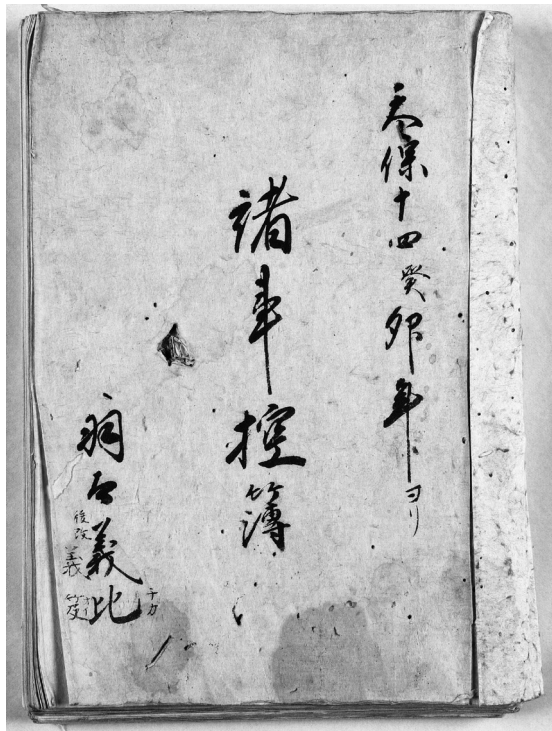 天保十四癸卯年ヨリ
諸事控簿
羽石義比
チカ
後改
義